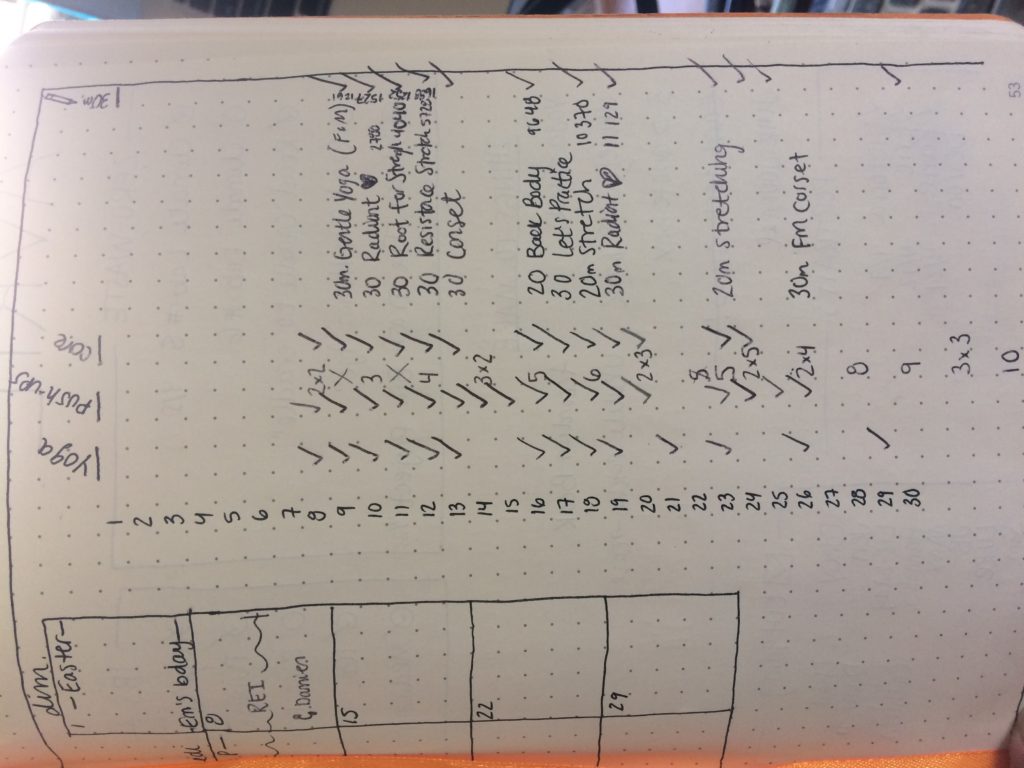 dim.
1 -Easter-
Em's bday
8
REI
G. Damien
15
22
29
Yoga push-ups core 30m.
1
2
3
4
5
6
7
8 2x2 30m Gentle Yoga (FWM)
9 X 30 Radiant
10 3 30 Root for Strength 4040
11 X 30 Resistance Stretch
12 4 30 Corset
13
14 3x2
15
16 5 20 Back Body 9648
17 30 Let's Practice
18 6 20m Stretch 10370
19 30m Radiant 11129
20 2x3
21
22 8
23 5 20m Stretching
24 2x5
25
26 2x4 30m FM Corset
27
28 8
29
30 9
3x3
10
53